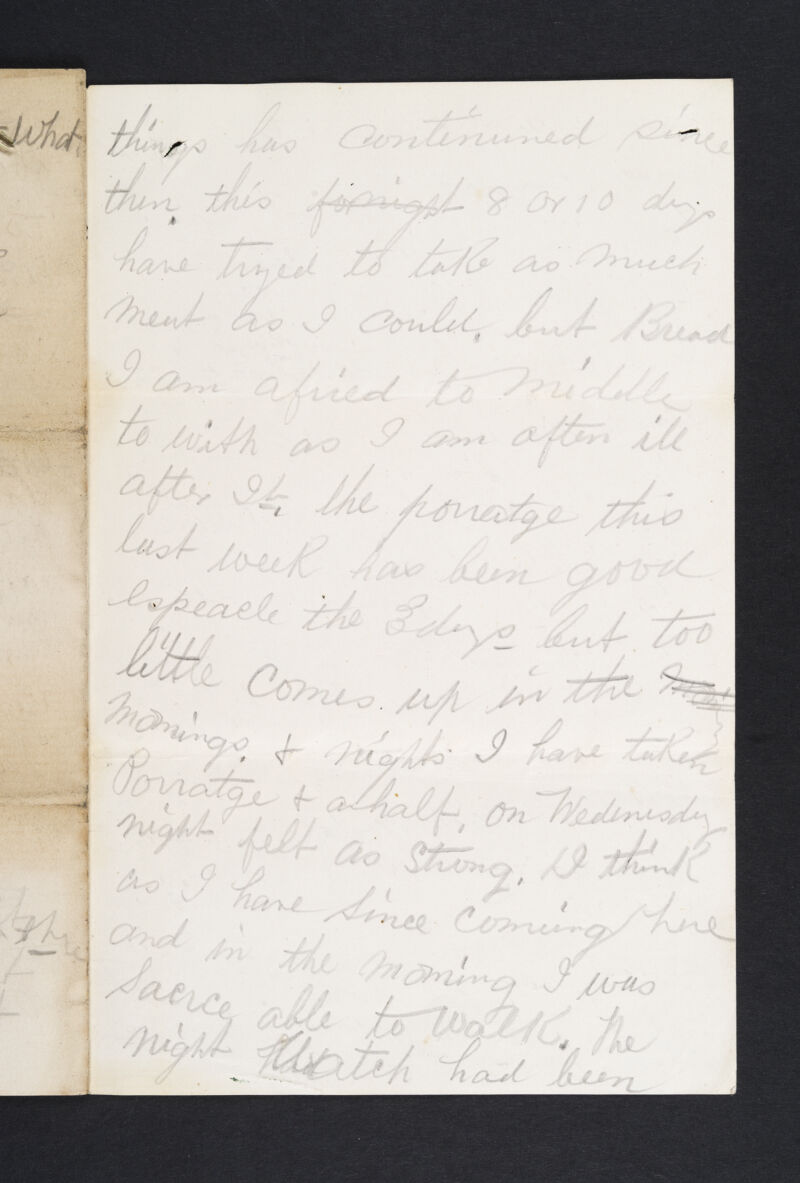 What
things has continuned since
then this fornigst 8 or 10 days
have tryed to take as much
meat as I could, but Bread
I am afried to middle
to with as I am often ill
after It, the porratge this
last week has been good
espeacle the 3 days but too
little comes up in the
mornings. & nights I have taken
Porratge & a half, on Wednesday
night felt as Strong, I think
as I have since coming here
and in the morning I was
Sacrce able to walk. The
night Watch had been